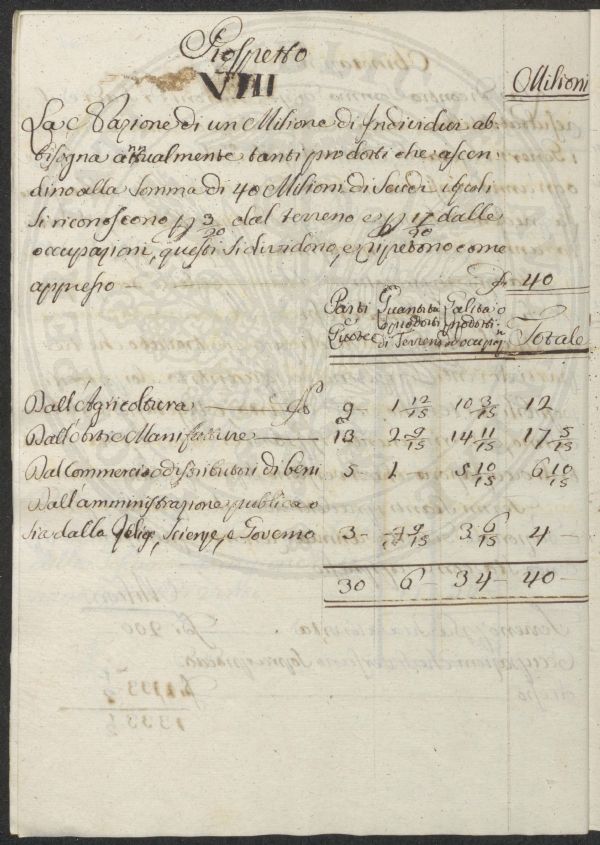 Prospetto
VIII
Milioni
La Nazione di un Milione di Individui ab
bisogna annualmente tanti prodotti che ascen
dino alla Somma di 40 Milioni di Scudi, i quali
Si riconoscono p 3/20 dal terreno e p 17/20 dalle
occupazioni, questi Si dividono, e ripetono come
appresso — 40
Parti Quantità Qalità o
e o prodotti prodotti Totale
Quote di Terreni d'occupazi
Dall'Agricoltura — 9 1 12/15 10 3/15 12
Dall'arti e Manifatture — 13 2 9/15 14 11/15 17 5/15
Dal Commercio o distributori di beni 5 1. 5 10/15 6 10/15
Dall'amministrazione publica o
sia dalla Relig., Scienze, e Governo 3 - 9/15 3 6/15 4 -
30 6 - 34 - 40 -